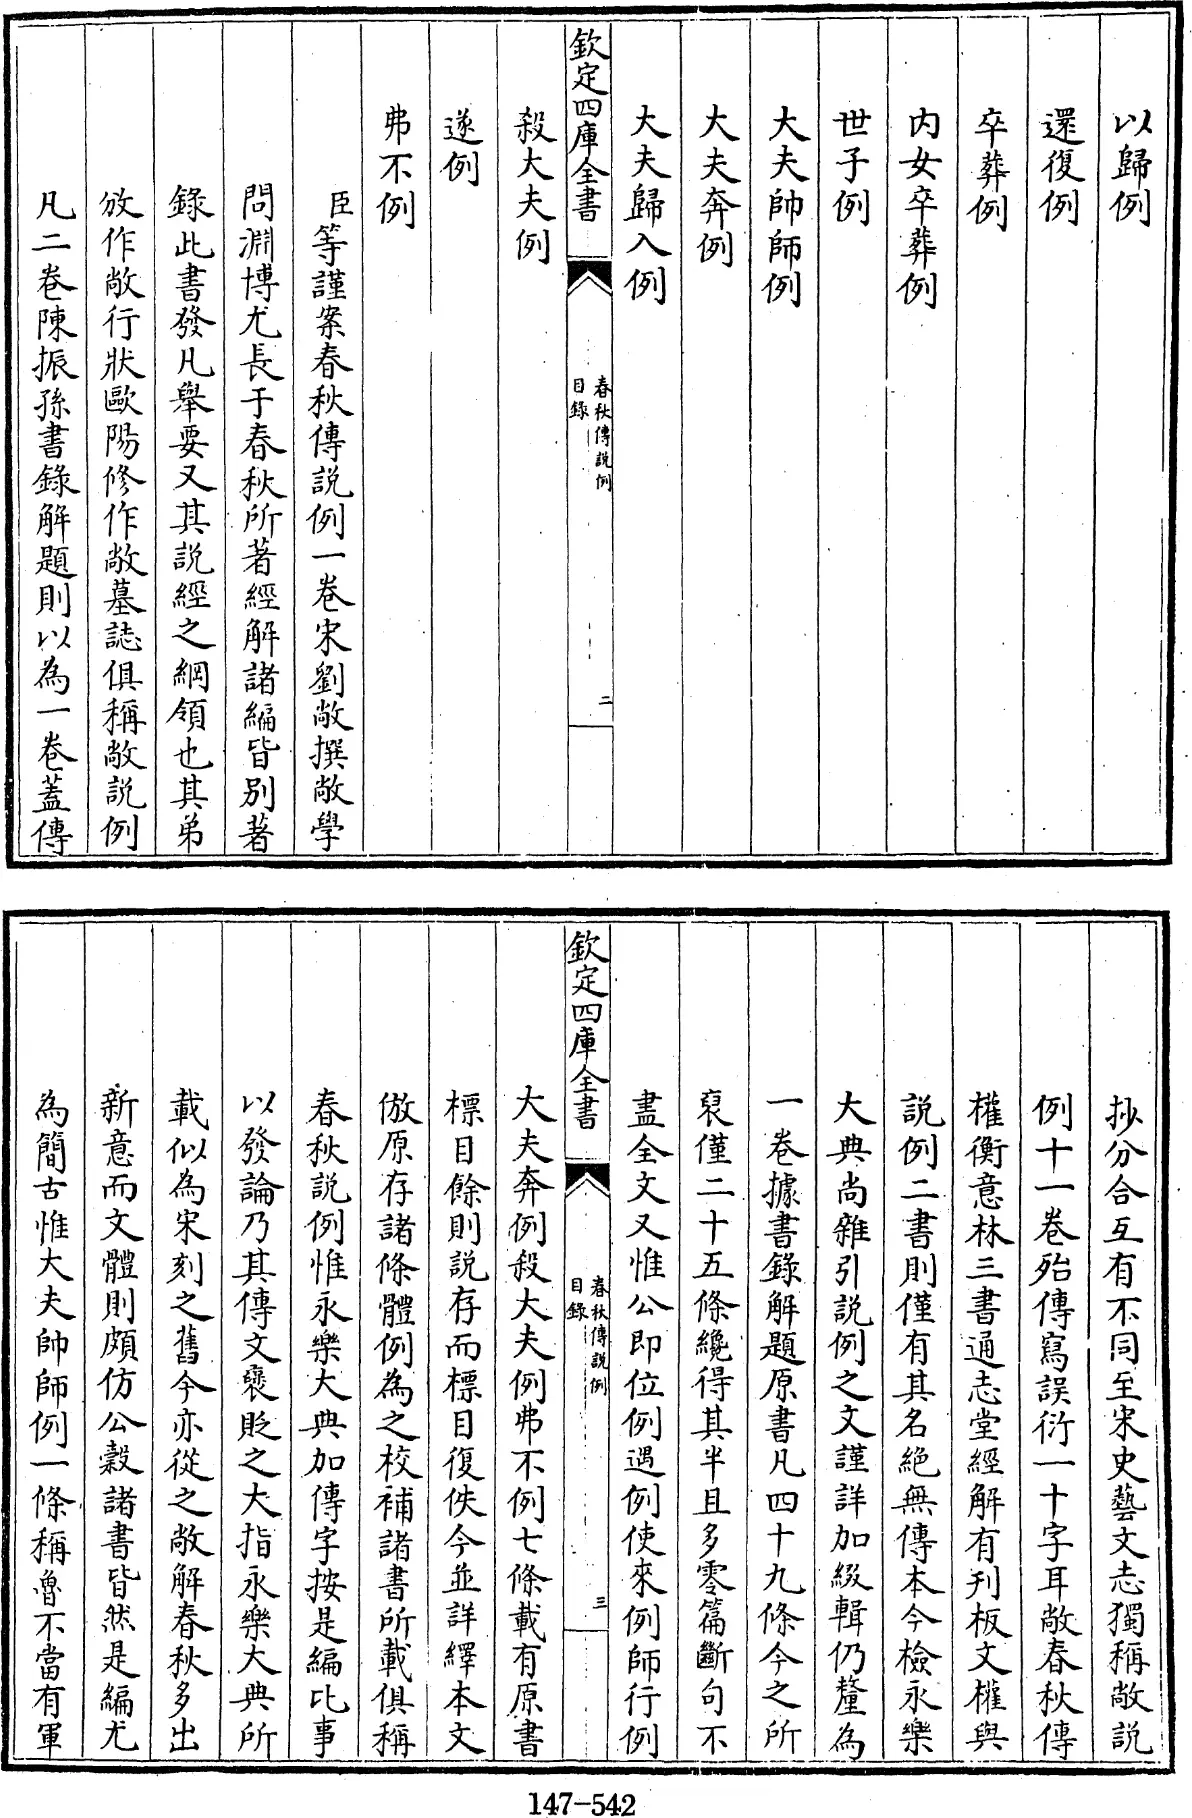 以歸例
還復例
卒葬例
内女卒葬例
世子例
大夫帥師例
大夫奔例
大夫歸入例
欽定四庫全書
春秋傳說例
目錄
二
殺大夫例
遂例
弗不例
臣等謹案春秋傳說例一卷宋劉敞撰敞學
問淵博尤長于春秋所著經解諸編皆别著
錄此書發凡舉要又其説經之綱領也其弟
攽作敞行狀歐陽修作敞墓誌俱稱敞説例
凡二卷陳振孫書錄解題則以為一卷蓋傳
抄分合互有不同至宋史藝文志獨稱敞説
例十一卷殆傳寫誤衍一十字耳敞春秋傳
權衡意林三書通志堂經解有刋板文權與
説例二書則僅有其名絶無傳本今檢永樂
大典尚雜引説例之文謹詳加綴輯仍釐為
一卷據書錄解題原書凡四十九條今之所
裒僅二十五條纔得其半且多零篇斷句不
盡全文又惟公即位例遇例使來例師行例
欽定四庫全書
春秋傳說例
目錄
三
大夫奔例殺大夫例弗不例七條載有原書
標目餘則説存而標目復佚今並詳繹本文
倣原存諸條體例為之校補諸書所載俱稱
春秋説例惟永樂大典加傳字按是編比事
以發論乃其傳文襃貶之大指永樂大典所
載似為宋刻之舊今亦從之敞解春秋多出
新意而文體則頗仿公穀諸書皆然是編尤
為簡古惟大夫帥師例一條稱魯不當有軍
147-542